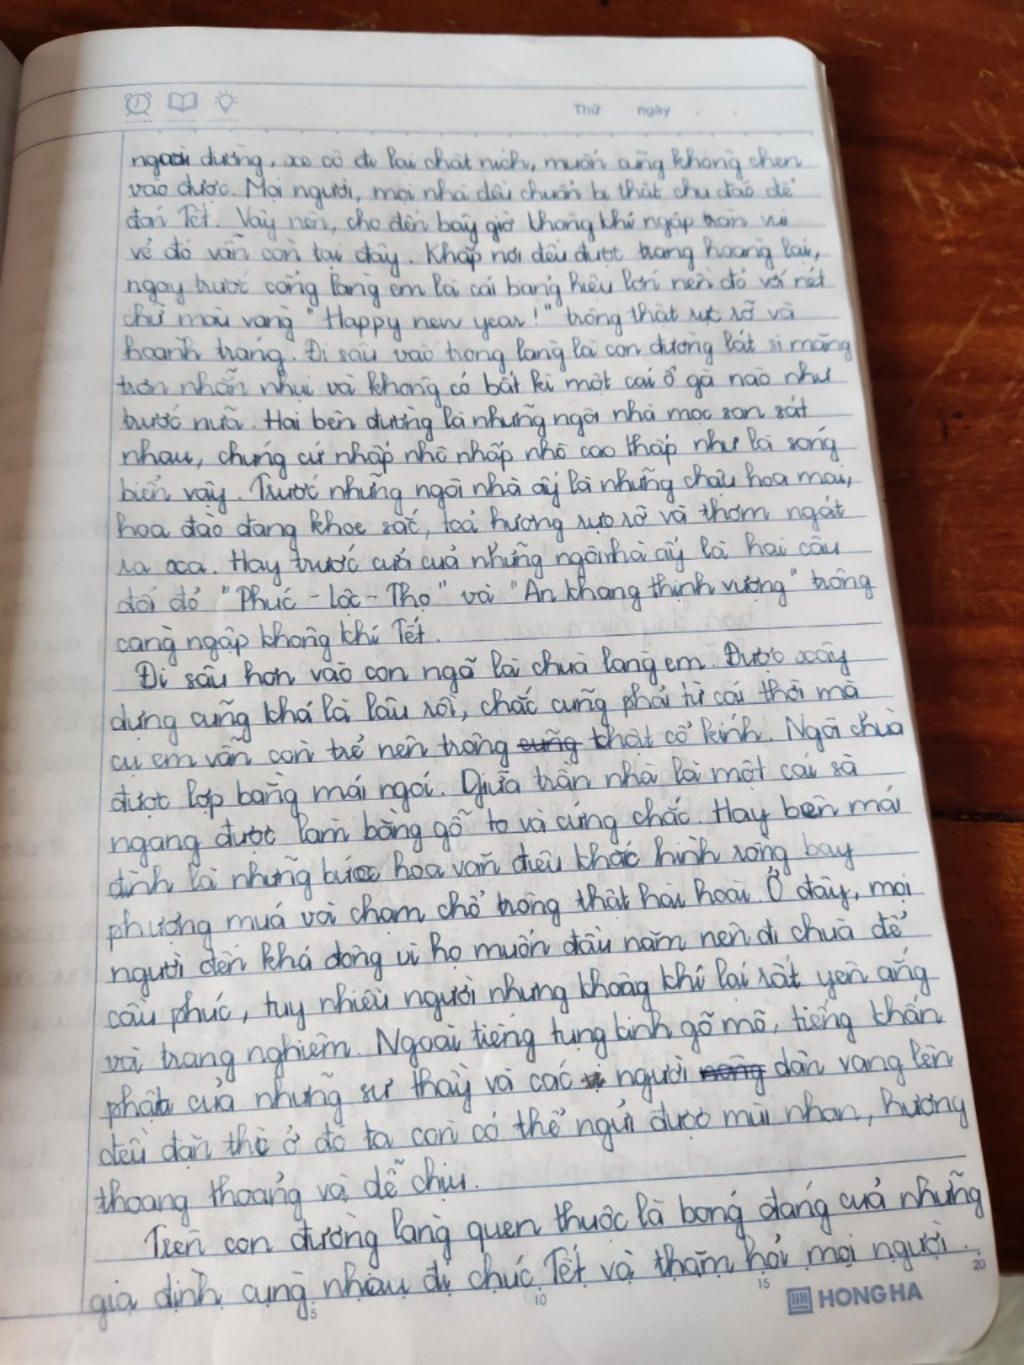 Thứ ngày
ngoài đường, xe cộ đi lại chật ních, muốn cũng không chen
vào được. Mọi người, mọi nhà đều chuẩn bị thật chu đáo để
đón Tết. Vậy nên, cho đến bây giờ không khí ngập tràn vui
vẻ đó vẫn còn tại đây. Khắp nơi đều được trang hoàng lại,
ngay trước cổng làng em là cái bảng hiệu lớn nền đỏ với nét
chữ màu vàng "Happy new year!" trông thật rực rỡ và
hoành tráng. Đi sâu vào trong làng là con đường lát si măng
trơn nhẵn nhụi và không có bất kì một cái ổ gà nào như
trước nữa. Hai bên đường là những ngôi nhà mọc san sát
nhau, chúng cứ nhấp nhô nhấp nhô cao thấp như là sóng
biển vậy. Trước những ngôi nhà ấy là những chậu hoa mai,
hoa đào đang khoe sắc, toả hương rực rỡ và thơm ngát
ra xa. Hay trước cửa của những ngôi nhà ấy là hai câu
đối đỏ "Phúc - Lộc - Thọ" và "An khang thịnh vượng" trông
càng ngập không khí Tết.
Đi sâu hơn vào con ngõ là chùa làng em. Được xây
dựng cũng khá là lâu rồi, chắc cũng phải từ cái thời mà
cụ em vẫn còn trẻ nên trông cũng thật cổ kính. Ngôi chùa
được lợp bằng mái ngói. Giữa trần nhà là một cái xà
ngang được làm bằng gỗ to và cứng chắc. Hay bên mái
đình là những bức hoa văn điêu khắc hình rồng bay
phượng múa và chạm chổ trông thật hài hoài. Ở đây, mọi
người đến khá đông vì họ muốn đầu năm nên đi chùa để
cầu phúc, tuy nhiều người nhưng không khí lại rất yên ắng
và trang nghiêm. Ngoài tiếng tụng kinh gõ mõ, tiếng khấn
phật của những sư thầy và các người nông dân vang lên
đều đặn thì ở đó ta còn có thể ngửi được mùi nhan, hương
thoang thoảng và dễ chịu.
Trên con đường làng quen thuộc là bóng dáng của những
gia đình cùng nhau đi chúc Tết và thăm hỏi mọi người.
5 10 15 20
HONG HA